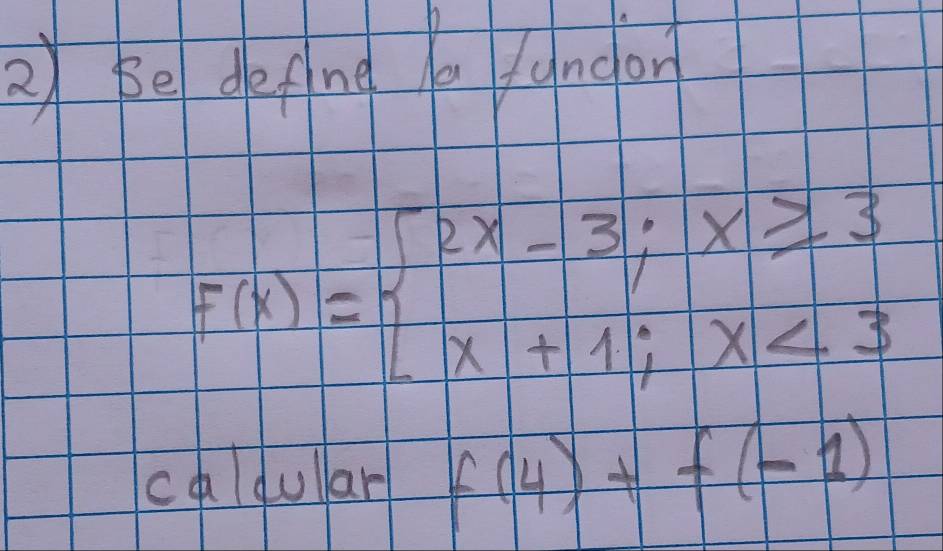 2) Se define la funcion
F(x) = { 2x - 3; x ≥ 3
x + 1; x < 3
calcular f(4) + f(-1)